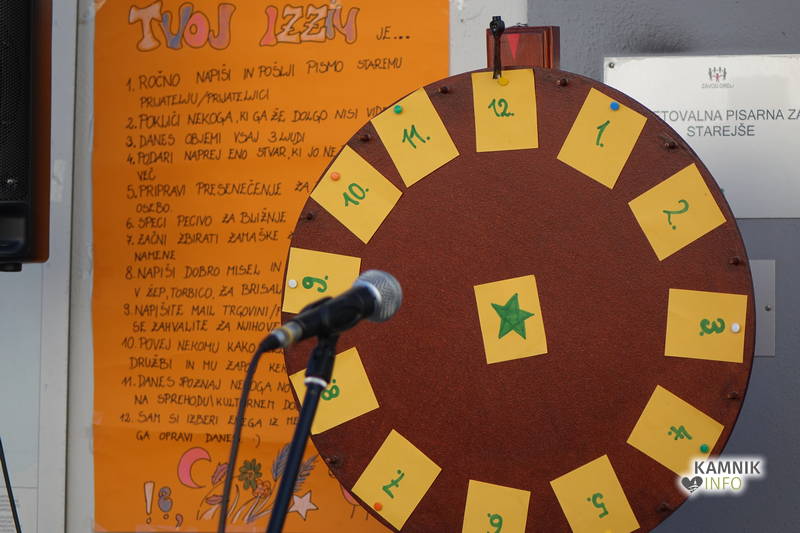 TVOJ IZZIV JE...
1. ROČNO NAPIŠI IN POŠLJI PISMO STAREMU
PRIJATELJU/PRIJATELJICI
2. POKLIČI NEKOGA, KI GA ŽE DOLGO NISI
3. DANES OBJEMI VSAJ 3 LJUDI
4. PODARI NAPREJ ENO STVAR, KI JO NE
VEČ
5. PRIPRAVI PRESENEČENJE ZA
OSEBO.
6. SPECI PECIVO ZA BLIŽNJE
7. ZAČNI ZBIRATI ZAMAŠKE
NAMENE
8. NAPIŠI DOBRO MISEL IN
V ŽEP, TORBICO, ZA BRISAL
9. NAPIŠITE MAIL TRGOVINI/
SE ZAHVALITE ZA NJIHOVE
10. POVEJ NEKOMU KAKO
DRUŽBI IN MU ZAPOJ
11. DANES SPOZNAJ NEKOGA NO
NA SPREHODU/KULTURNEM DO
12. SAM SI IZBERI ENEGA IZ ME
GA OPRAVI DANES :)
12.
1.
2.
3.
4.
5.
6.
7.
8.
9.
10.
11.
ZAVOD ORELI
ETOVALNA PISARNA ZA
STAREJŠE
KAMNIK
INFO